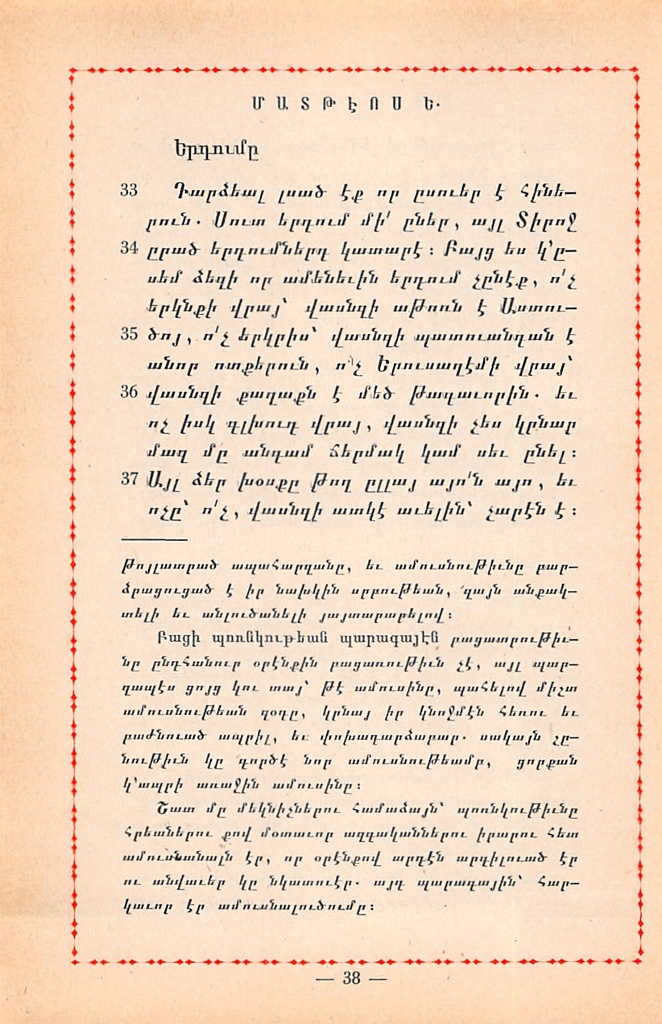 ՄԱՏԹԷՈՍ Ե.
Երդումը
33 Դարձեալ լսած էք որ ըսուեր է հինե–
րուն. Սուտ երդում մի՛ ըներ, այլ Տիրոջ
34 ըրած երդումներդ կատարէ : Բայց ես կ՚ը–
սեմ ձեզի որ ամենեւին երդում չընէք, ո՛չ
երկնքի վրայ՝ վասնզի աթոռն է Աստու–
35 ծոյ, ո՛չ երկրիս՝ վասնզի պատուանդան է
անոր ոտքերուն, ո՛չ Երուսաղէմի վրայ՝
36 վասնզի քաղաքն է մեծ Թագաւորին. եւ
ոչ իսկ գլխուդ վրայ, վասնզի չես կրնար
մազ մը անգամ ճերմակ կամ սեւ ընել :
37 Այլ ձեր խօսքը թող ըլլայ այո՛ն այո, եւ
ոչը՝ ո՛չ, վասնզի ատկէ աւելին՝ չարէն է :
թոյլատրած ապահարզանը, եւ ամուսնութիւնը բար–
ձրացուցած է իր նախկին սրբութեան, զայն անքակ–
տելի եւ անլուծանելի յայտարարելով :
Բացի պոռնկութեան պարագայէն բացատրութիւ–
նը ընդհանուր օրէնքին բացառութիւն չէ, այլ պար–
զապէս ցոյց կու տայ՝ թէ ամուսինը, պահելով միշտ
ամուսնութեան զօդը, կրնայ իր կնոջմէն հեռու եւ
բաժնուած ապրիլ, եւ փոխադարձաբար. սակայն չը–
նութիւն կը գործէ նոր ամուսնութեամբ, ցորքան
կ՚ապրի առաջին ամուսինը :
Շատ մը մեկնիչներու համաձայն՝ պոռնկութիւնը
Հրեաներու քով մօտաւոր ազգականներու իրարու հետ
ամուսնանալն էր, որ օրէնքով արդէն արգիլուած էր
ու անվաւեր կը նկատուէր. այդ պարագային՝ հար–
կաւոր էր ամուսնալուծումը :
— 38 —